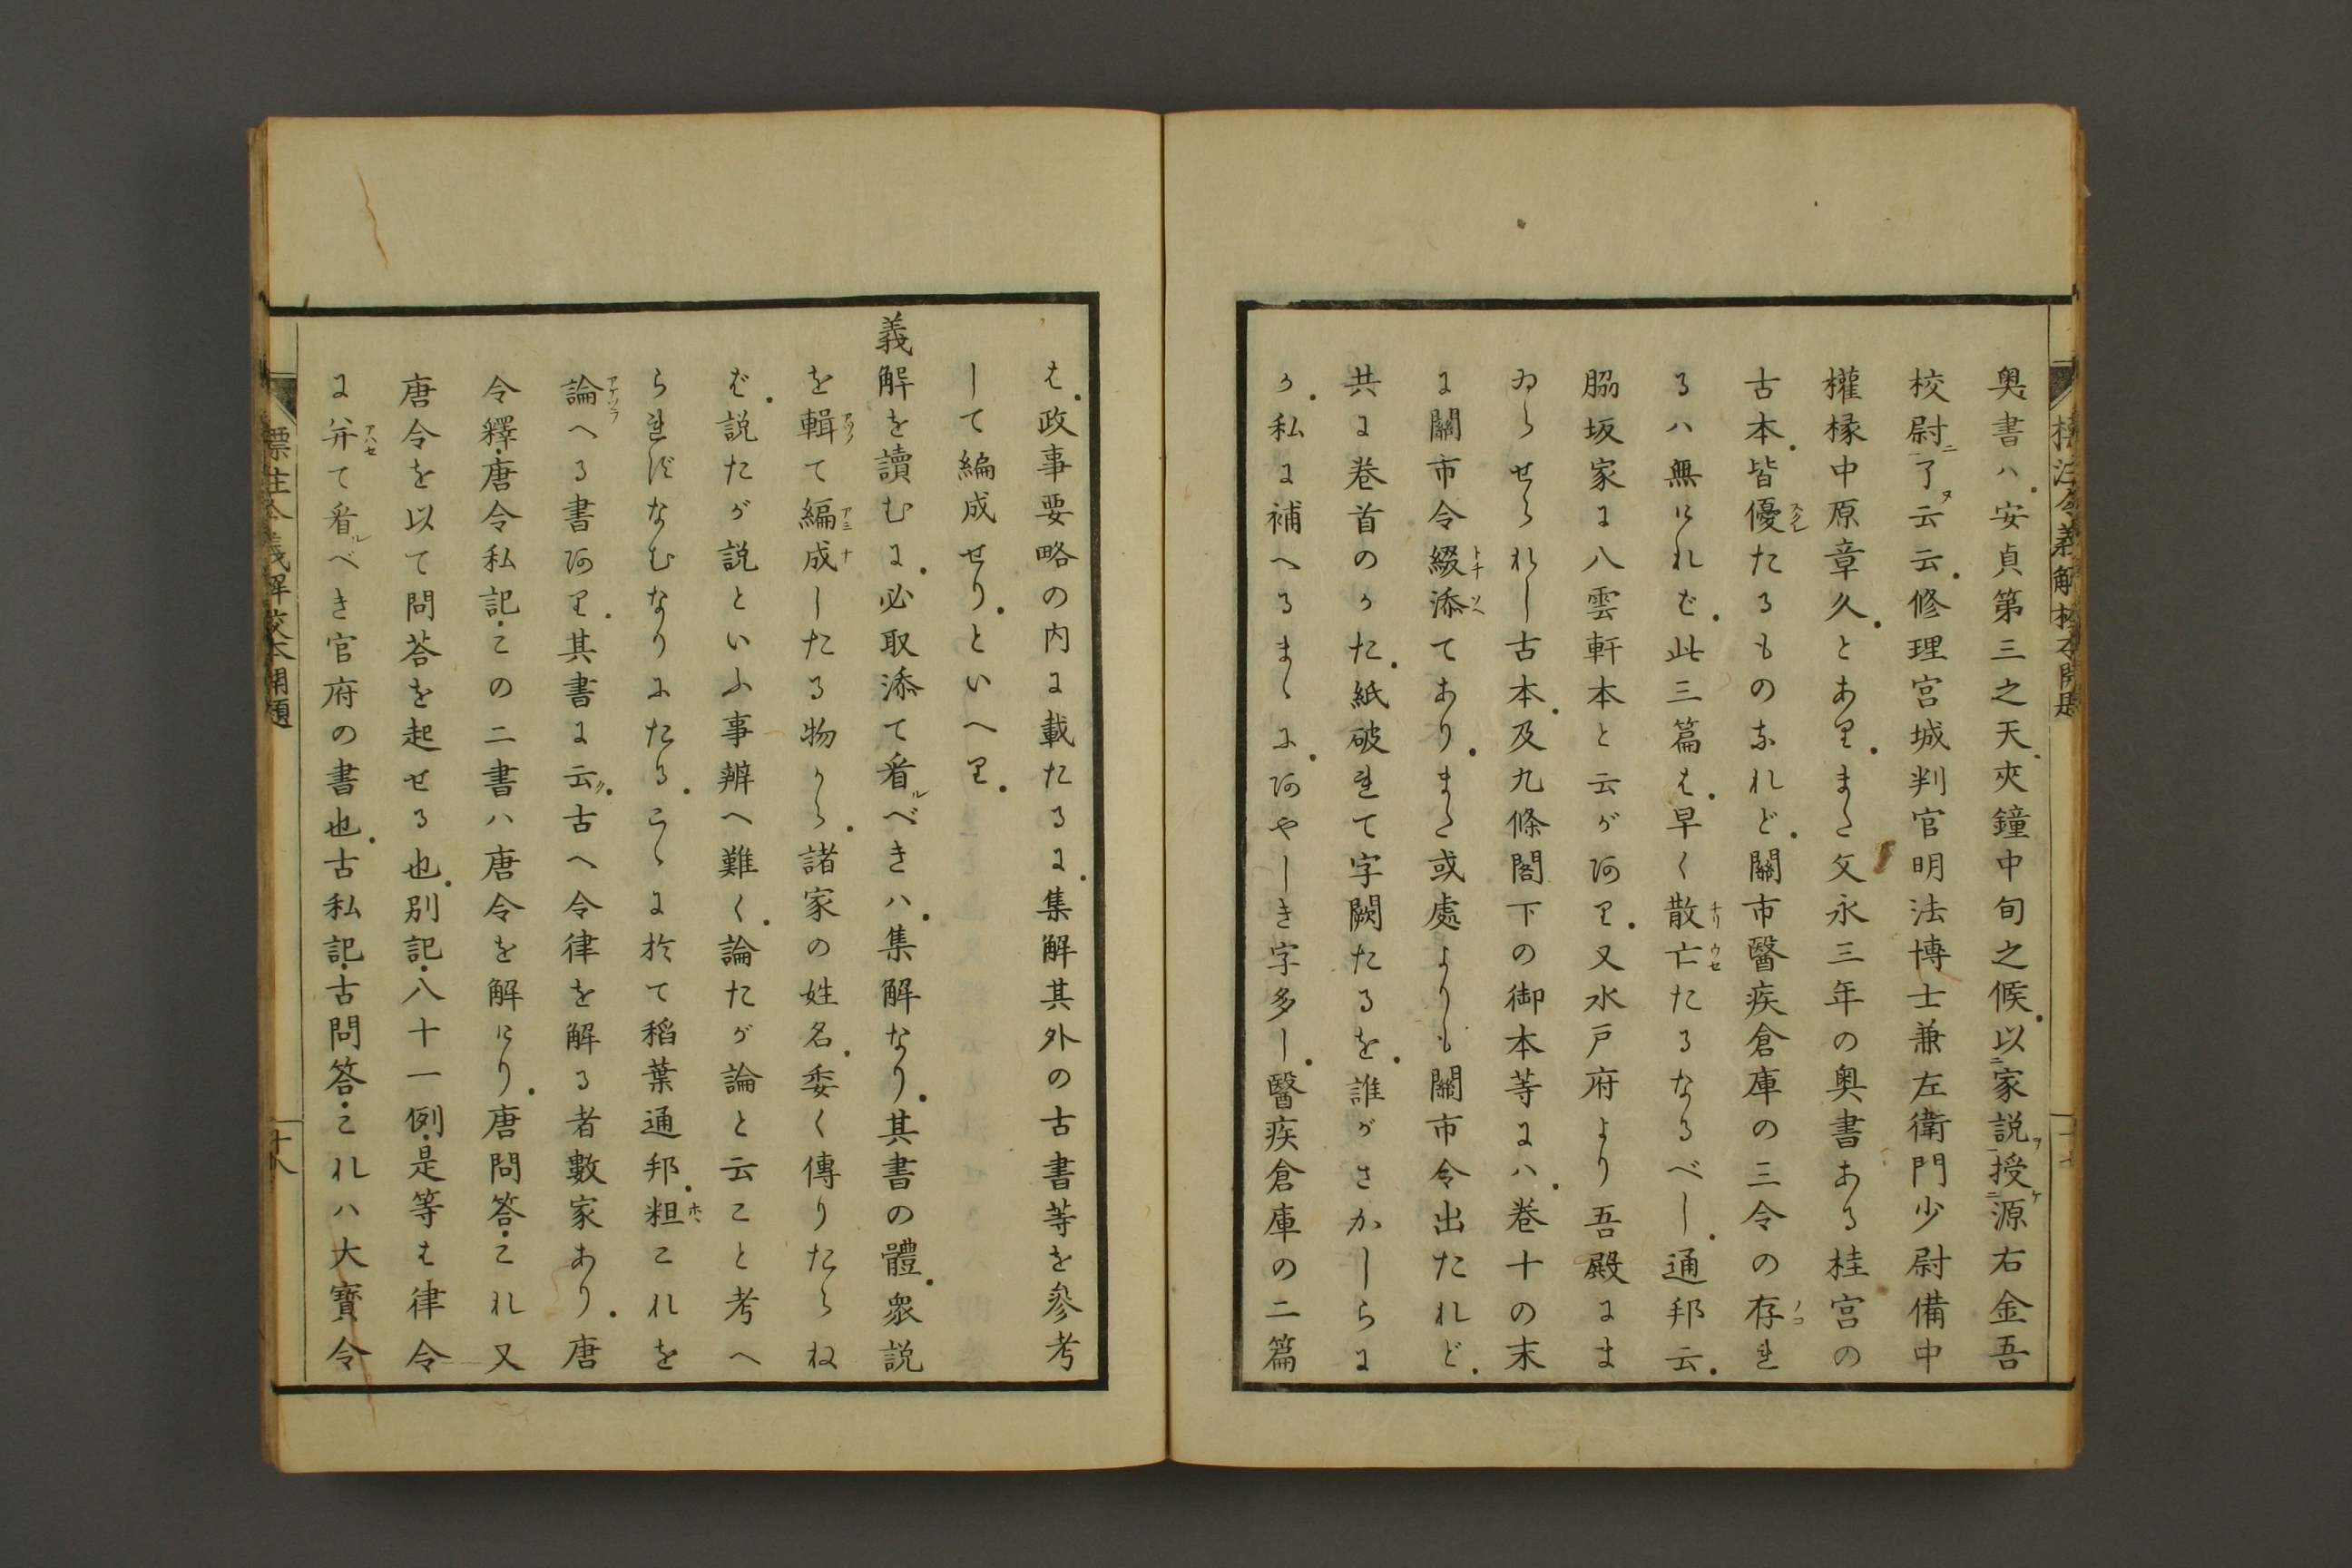 標注令義解校本開題
奥書ハ安貞第三之天夾鐘中旬之候以家説授源右金吾
校尉了云云修理宮城判官明法博士兼左衛門少尉備中
權椽中原章久とあり。また文永三年の奥書ある桂宮の
古本。皆優たるものなれど。關市醫疾倉庫の三令の存れ
るハ無けれど。此三篇は。早く散亡たるなるべし。通邦云。
脇坂家に八雲軒本と云があり。又水戸府より吾殿にま
ゐらせられし古本。及九條閤下の御本等にハ。巻十の末
に關市令綴添てあり。また或處よりも關市令出たれど。
共に巻首のかた。紙破れて字闕たるを。誰がさかしらに
か。私に補へるまゝに。あやしき字多し。醫疾倉庫の二篇
は。政事要略の内に載たるに。集解其外の古書等を參考
して編成せり。といへり。
義解を讀むに。必取添て看べきハ。集解なり。其書の體。衆説
を輯て編成したる物から。諸家の姓名。委く傳りたらね
ば。説たが説といふ事辨へ難く。論たが論と云こと考へ
られずなむなりにたる。こゝに於て稻葉通邦。粗これを
論へる書あり。其書に云。古へ令律を解る者數家あり。唐
令釋。唐令私記。この二書ハ唐令を解けり。唐問答。これ又
唐令を以て問荅を起せる也。別記。八十一例。是等は律令
に并て看べき官府の書也。古私記。古問答。これハ大寶令
標注令義解校本開題
十八